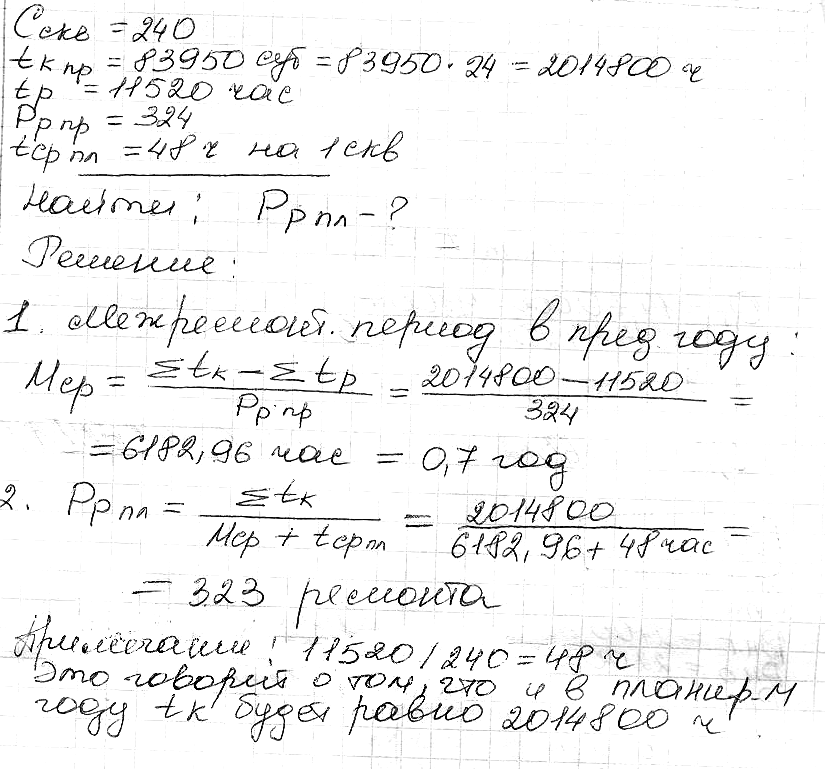 Сскв = 240
tк пр = 83950 суб = 83950 · 24 = 2014800 ч
tр = 11520 час
Рр пр = 324
tср пл = 48 ч на 1 скв
Найти: Рр пл - ?
Решение:
1. Межремонт. период в пред году:
Мср = Σtк – Σtр / Рр·пр = 2014800 – 11520 / 324 =
= 6182,96 час = 0,7 год
2. Рр пл = Σtк / Мср + tср пл = 2014800 / 6182,96 + 48 час =
= 323 ремонта
Примечание: 11520 / 240 = 48 ч
Это говорит о том, что и в планир-м
году tк будет равно 2014800 ч